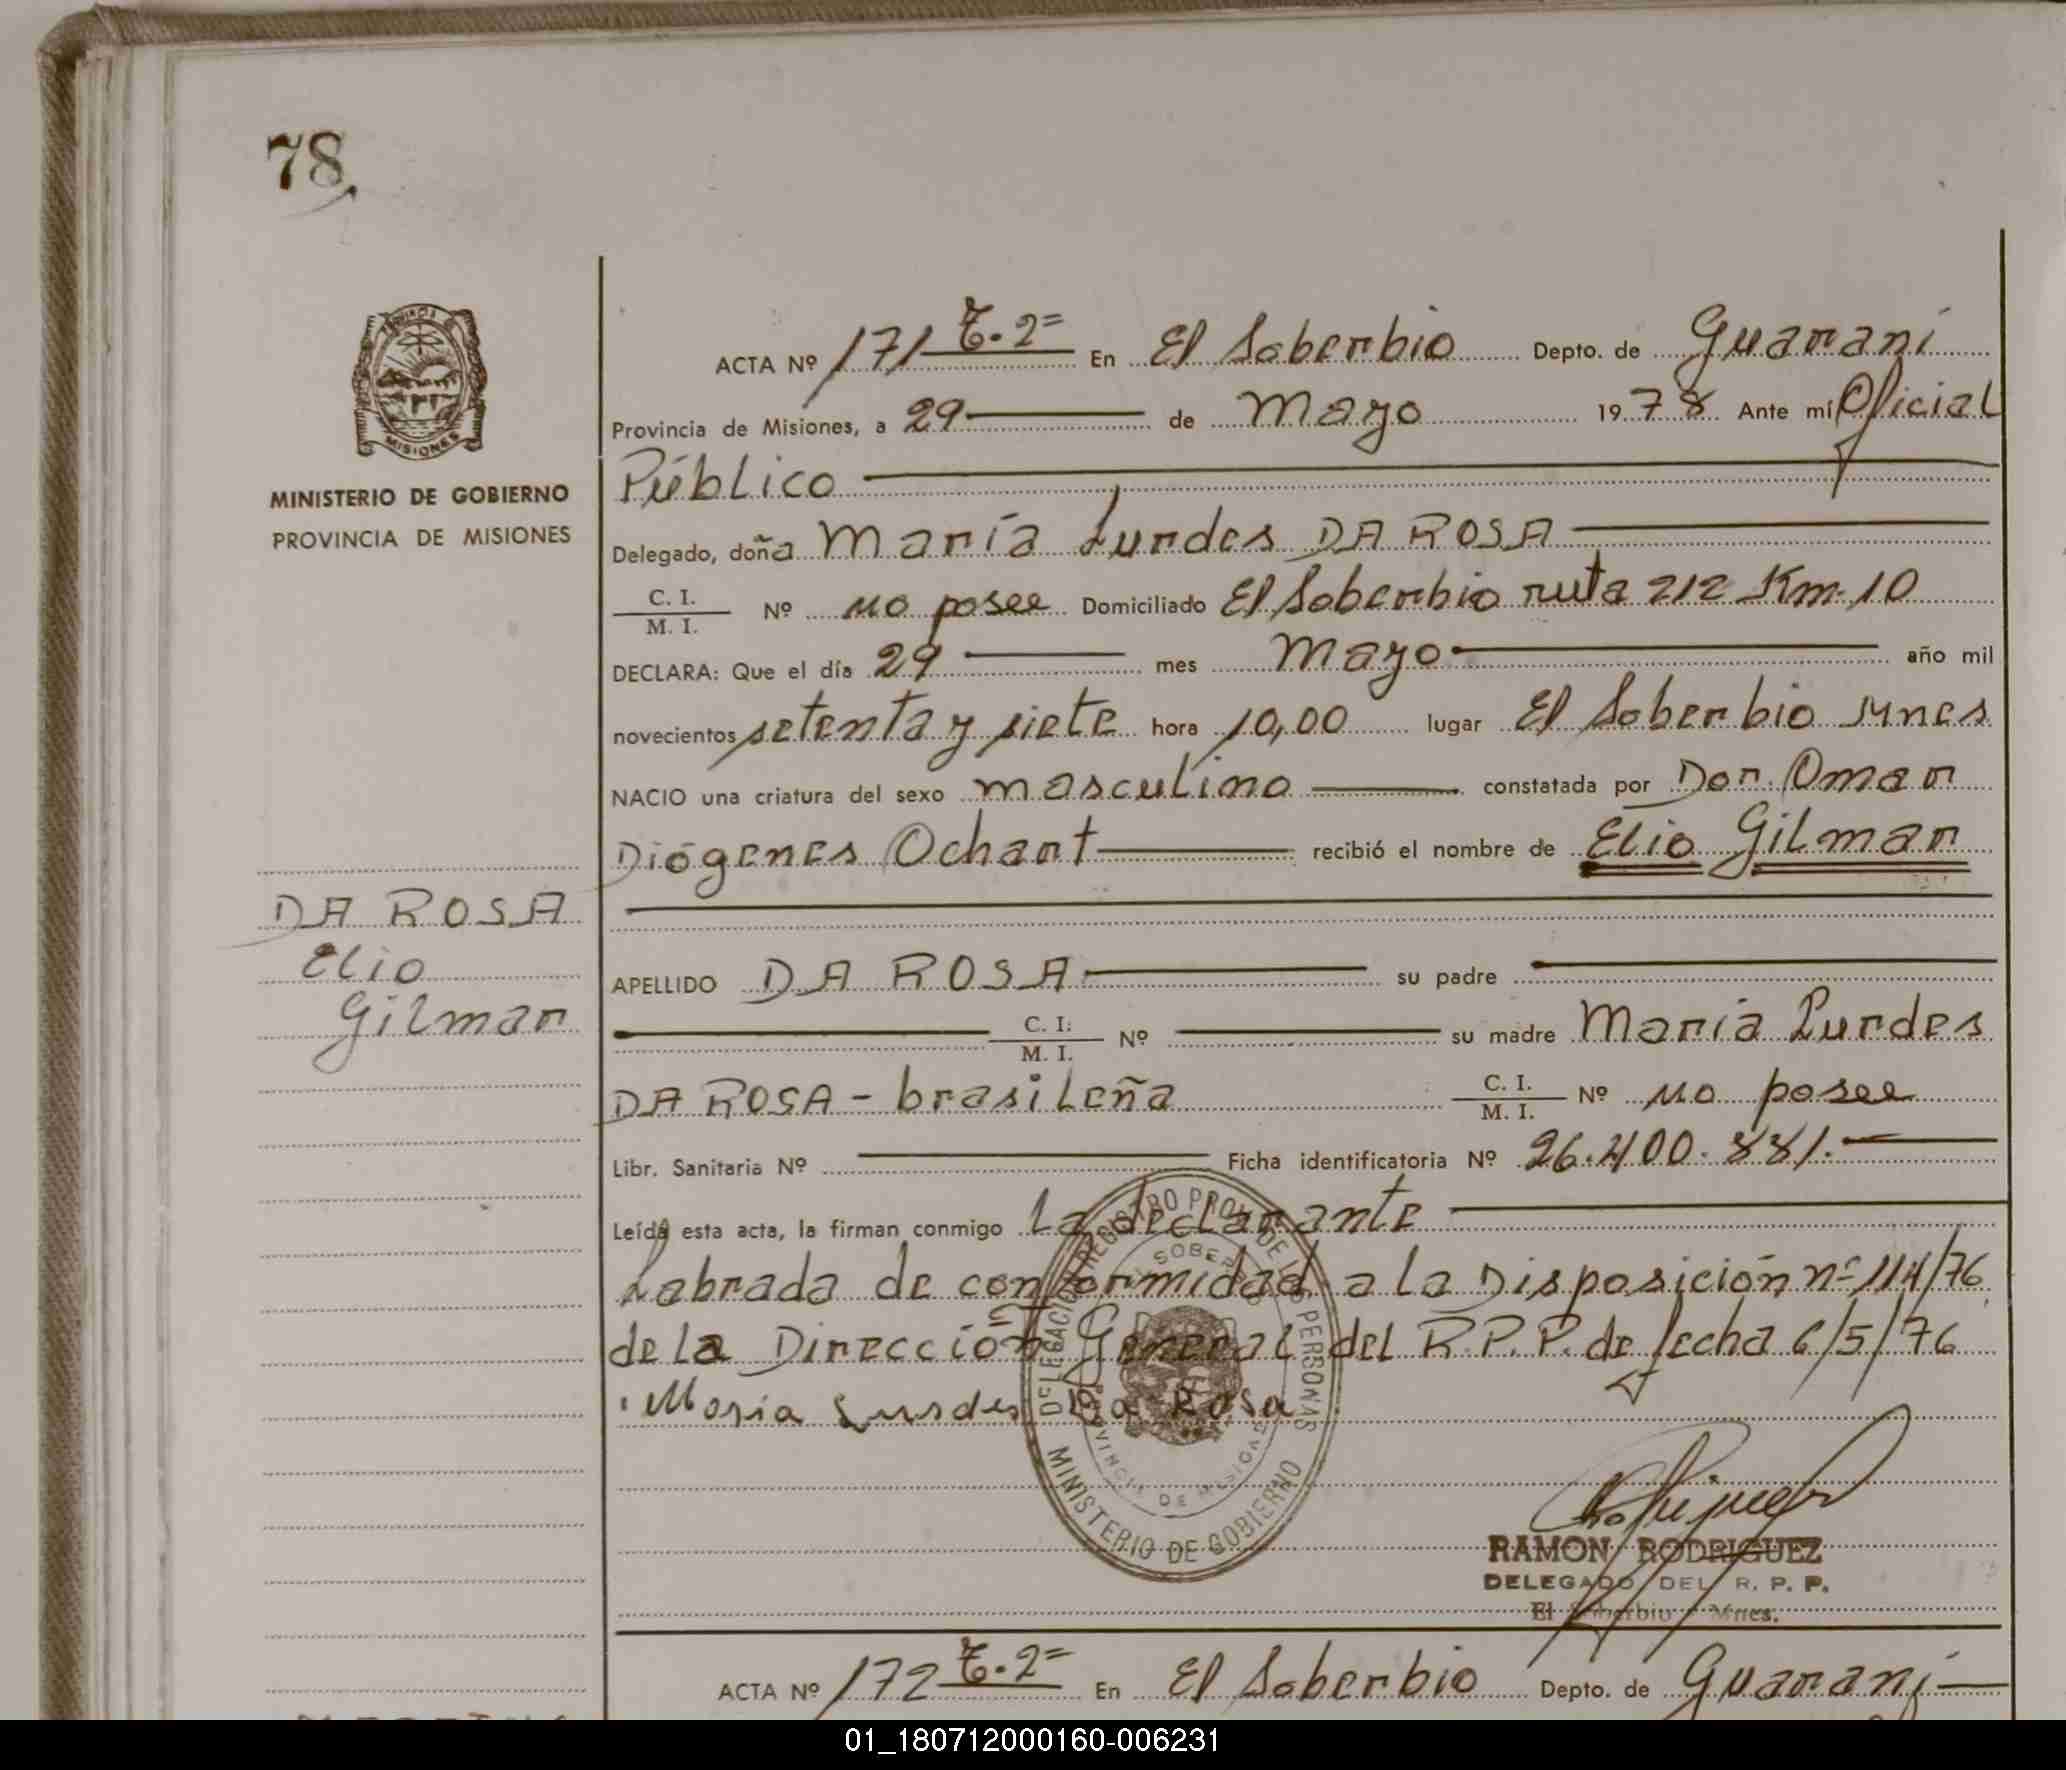 78
MINISTERIO DE GOBIERNO
PROVINCIA DE MISIONES
DA ROSA
Elio
Gilmar
ACTA Nº 171 T. 2º En El Soberbio Depto. de Guaraní
Provincia de Misiones, a 29 de Mayo 1978 Ante mí Oficial
Público
Delegado, doña María Lurdes DA ROSA
C. I. / M. I. Nº no posee Domiciliado El Soberbio ruta 212 Km. 10
DECLARA: Que el día 29 mes Mayo año mil
novecientos setenta y siete hora 10,00 lugar El Soberbio Mnes
NACIO una criatura del sexo masculino constatada por Dor. Omar
Diógenes Ochart recibió el nombre de Elio Gilmar
APELLIDO DA ROSA su padre
C. I. / M. I. Nº su madre María Lurdes
DA ROSA - brasileña C. I. / M. I. Nº no posee
Libr. Sanitaria Nº Ficha identificatoria Nº 26.400.881.
Leída esta acta, la firman conmigo la declarante
Labrada de conformidad a la Disposición nº 114/76
de la Dirección General del R.P.P. de fecha 6/5/76
Maria Lurdes Da Rosa
DELEGACION REGISTRO PROV. DE LAS PERSONAS
EL SOBERBIO
PROVINCIA DE MISIONES
MINISTERIO DE GOBIERNO
RAMON RODRIGUEZ
DELEGADO DEL R. P. P.
El Soberbio - Mnes.
ACTA Nº 172 T. 2º En El Soberbio Depto. de Guaraní
01_180712000160-006231